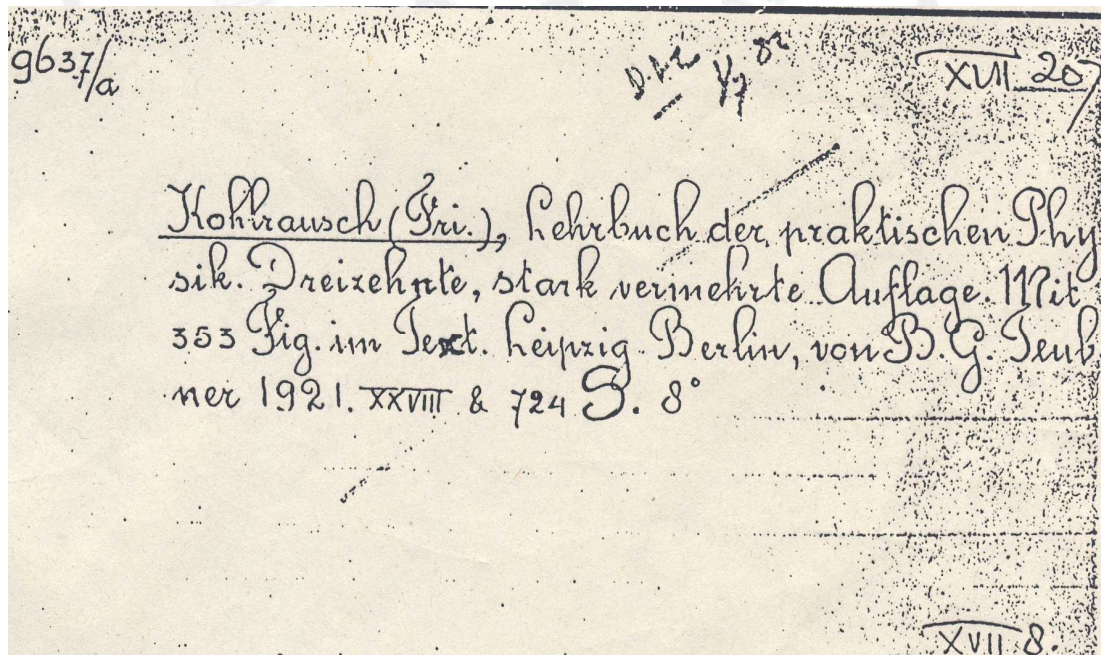 9637/a
XVII 20
Kohlrausch (Fri.), Lehrbuch der praktischen Phy
sik. Dreizehnte, stark vermehrte Auflage. Mit
353 Fig. im Text. Leipzig Berlin, von B. G. Teub
ner 1921. XXVIII & 724 S. 8°
XVII 8.